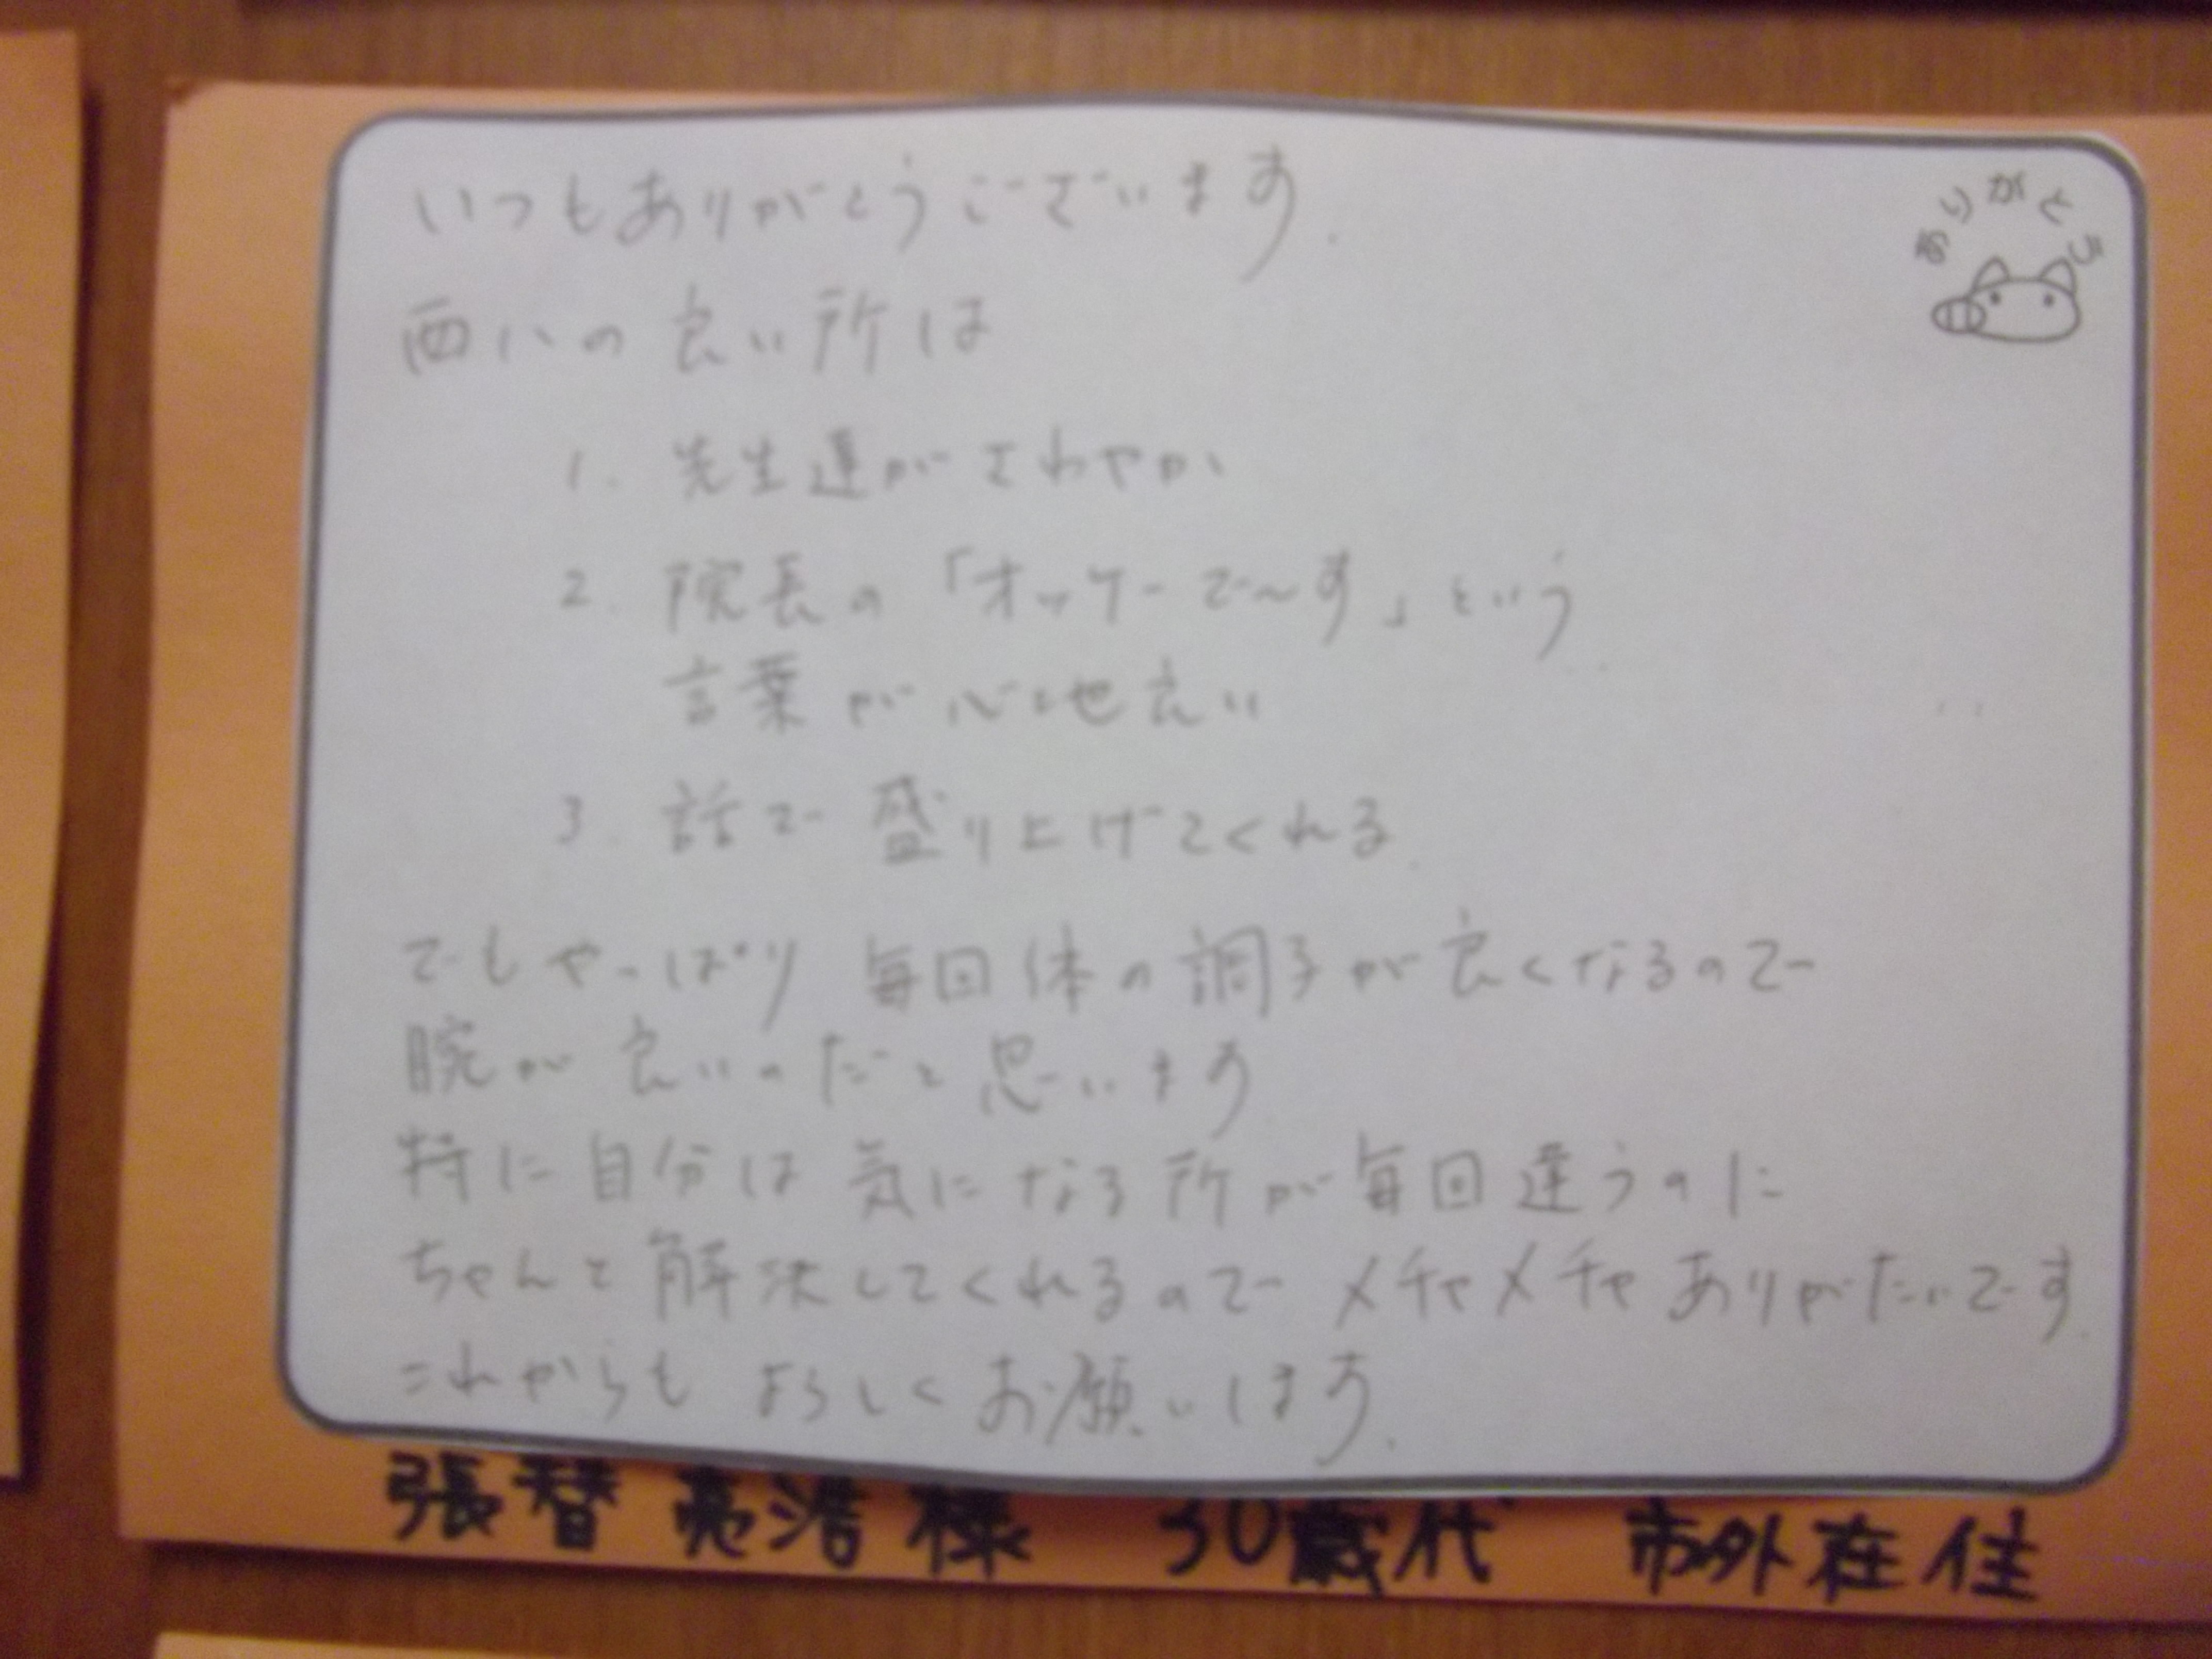 いつもありがとうございます.
ありがとう
西いの良い所は
1. 先生達がさわやか
2. 院長の「オッケーで〜す」という
言葉が心地良い
3. 話で盛り上げてくれる.
でもやっぱり 毎回体の調子が良くなるので
腕が良いのだと思います
特に自分は気になる所が毎回違うのに
ちゃんと解決してくれるので メチャメチャありがたいです.
これからも よろしくお願いします.
張替 亮浩様 30歳代 市外在住